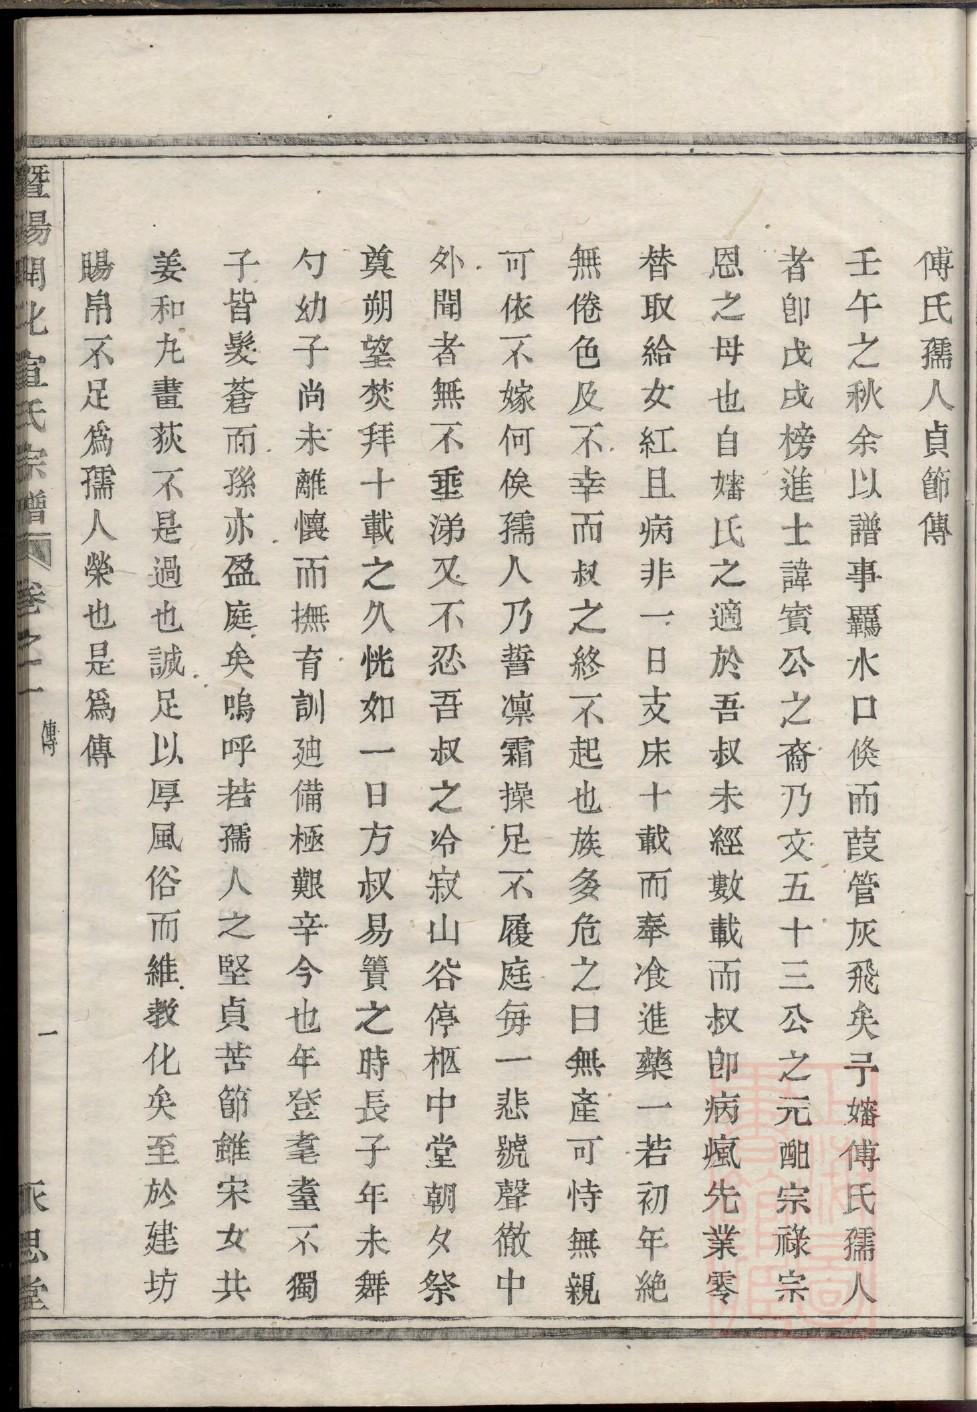 傅氏孺人貞節傳
壬午之秋余以譜事羈水口倏而葭管灰飛矣予嬸傅氏孺人
者卽戊戌榜進士諱賓公之裔乃文五十三公之元配宗祿宗
恩之母也自嬸氏之適於吾叔未經數載而叔卽病瘋先業零
替取給女紅且病非一日支床十載而奉飡進藥一若初年絶
無倦色及不幸而叔之終不起也族多危之曰無產可恃無親
可依不嫁何俟孺人乃誓凛霜操足不履庭每一悲號聲徹中
外聞者無不垂涕又不忍吾叔之冷寂山谷停柩中堂朝夕祭
奠朔望焚拜十載之久恍如一日方叔易簀之時長子年未舞
勺幼子尚未離懷而撫育訓廸備極艱辛今也年登耄耋不獨
子皆髮蒼而孫亦盈庭矣嗚呼若孺人之堅貞苦節雖宋女共
姜和九畫荻不是過也誠足以厚風俗而維教化矣至於建坊
賜帛不足爲孺人榮也是爲傳
暨陽開化宣氏宗譜 卷之一 傳 一 永思堂